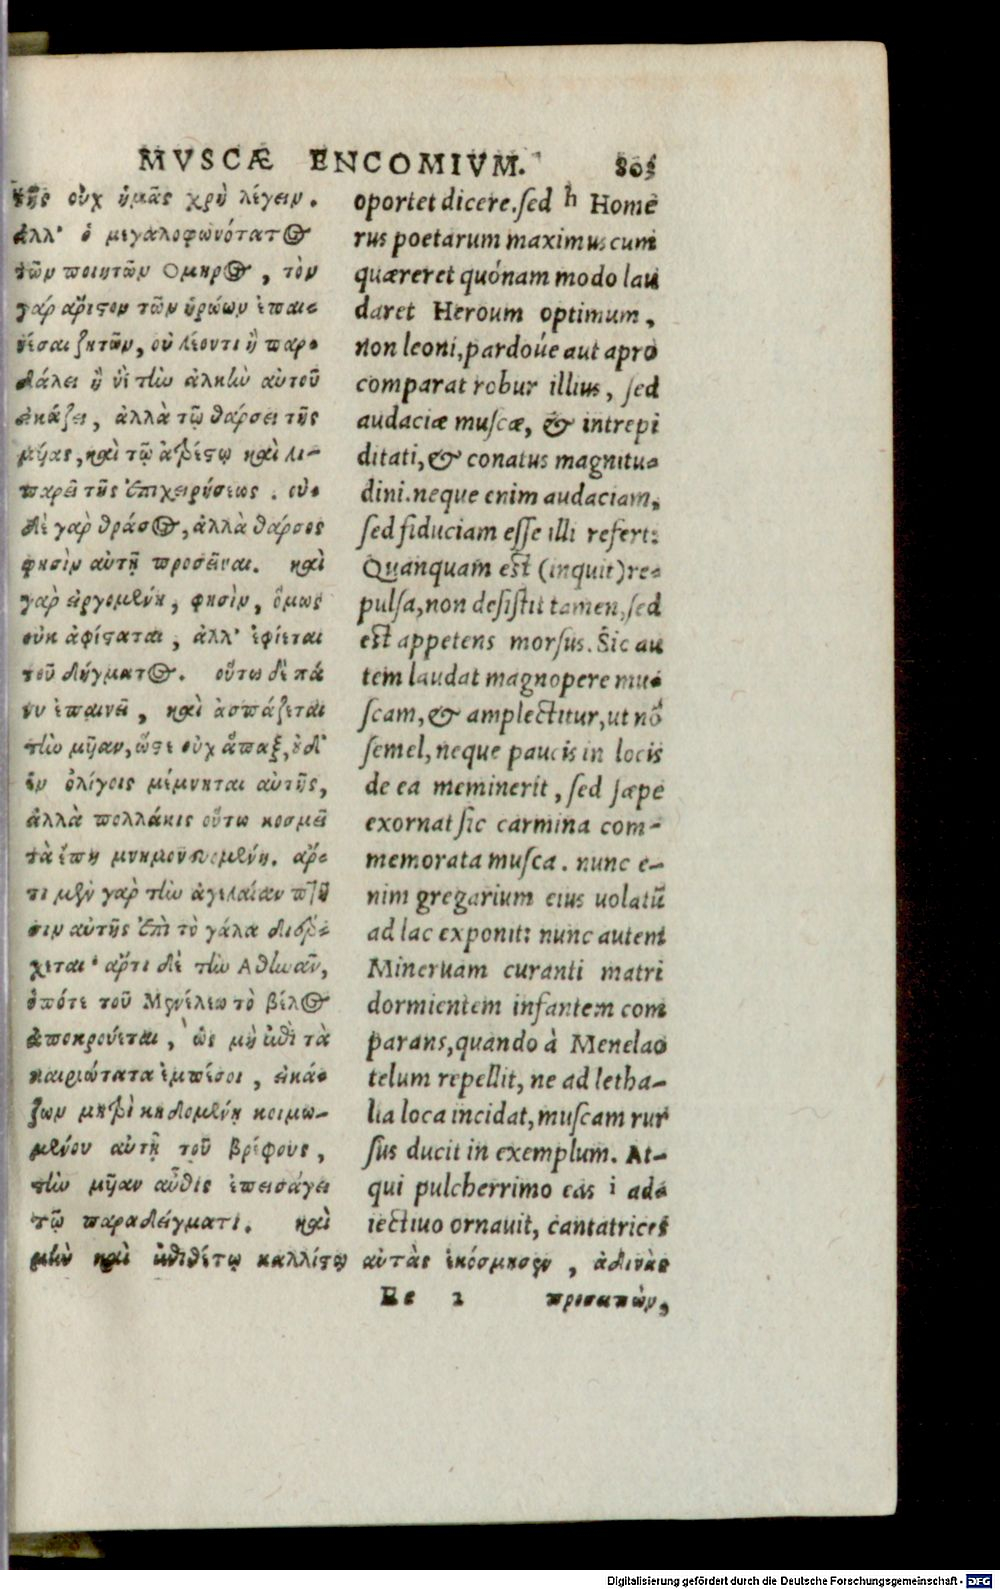 MVSCÆ ENCOMIVM. 805
τῆς οὐχ ἡμᾶς χρὴ λέγειν.
ἀλλ' ὁ μεγαλοφωνότατος
τῶν ποιητῶν Ὅμηρος, τὸν
γάρ ἄριστον τῶν ἡρώων ἐπαι-
νέσαι ζητῶν, οὐ λέοντι ἢ παρ-
δάλει ἢ ὑῒ τὴν ἀλκὴν αὐτοῦ
εἰκάζει, ἀλλὰ τῷ θάρσει τῆς
μύιας, καὶ τῷ ἀτρέστῳ καὶ λι-
παρεῖ τῆς ἐπιχειρήσεως. οὐ-
δὲ γὰρ θράσος, ἀλλὰ θάρσος
φησὶν αὐτῇ προσεῖναι. καὶ
γὰρ εἰργομένη, φησὶν, ὅμως
οὐκ ἀφίσταται, ἀλλ' ἐφίεται
τοῦ δήγματος. οὕτω δὲ πά
νυ ἐπαινεῖ, καὶ ἀσπάζεται
τὴν μῦαν, ὥστε οὐχ ἅπαξ, οὐδ'
ἐν ὀλίγοις μέμνηται αὐτῆς,
ἀλλὰ πολλάκις οὕτω κοσμεῖ
τὰ ἔπη μνημονευομένη. ἄρ-
τι μὲν γὰρ τὴν ἀγελαίαν πτῆ
σιν αὐτῆς ἐπὶ τὸ γάλα διέρ-
χεται· ἄρτι δὲ τὴν Ἀθηνᾶν,
ὁπότε τοῦ Μενέλεω τὸ βέλος
ἀποκρούεται, ὡς μὴ ἐπὶ τὰ
καιριώτατα ἐμπέσοι, εἰκά-
ζων μητρὶ κηδομένῃ κοιμω-
μένου αὐτῇ τοῦ βρέφους,
τὴν μῦαν αὖθις ἐπεισάγει
τῷ παραδείγματι. καὶ
μὴν καὶ ἐπιθέτῳ καλλίστῳ αὐτὰς ἐκόσμησεν, ἀδινὰς
oportet dicere. sed h Homē
rus poetarum maximus cum
quæreret quónam modo lau
daret Heroum optimum,
non leoni, pardoúe aut apro
comparat robur illius, sed
audaciæ muscæ, & intrepi
ditati, & conatus magnitu-
dini. neque enim audaciam,
sed fiduciam esse illi refert:
Quanquam est (inquit) re-
pulsa, non desistit tamen, sed
est appetens morsus. Sic au
tem laudat magnopere mu-
scam, & amplectitur, ut nō
semel, neque paucis in locis
de ea meminerit, sed sæpe
exornat sic carmina com-
memorata musca. nunc e-
nim gregarium eius uolatū
ad lac exponit: nunc autem
Mineruam curanti matri
dormientem infantem com
parans, quando à Menelao
telum repellit, ne ad letha-
lia loca incidat, muscam rur
sus ducit in exemplum. At-
qui pulcherrimo eas i ad-
iectiuo ornauit, cantatrices
Ee 2 προσειπὼν,
Digitalisierung gefördert durch die Deutsche Forschungsgemeinschaft - DFG